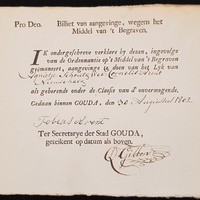 Pro Deo. Billet van aangevinge, wegens het
Middel van 't Begraven.
IK ondergeschreve verklare by dezen, ingevolge
van de Ordonnantie op 't Middel van 't Begraven
geëmaneert, aangevinge te doen van het Lyk van
als gehorende onder de Classe van d' onvermogende.
Gedaan binnen GOUDA, den 30 Augustus 1802
Ter Secretarye der Stad GOUDA,
getekent op datum als boven.